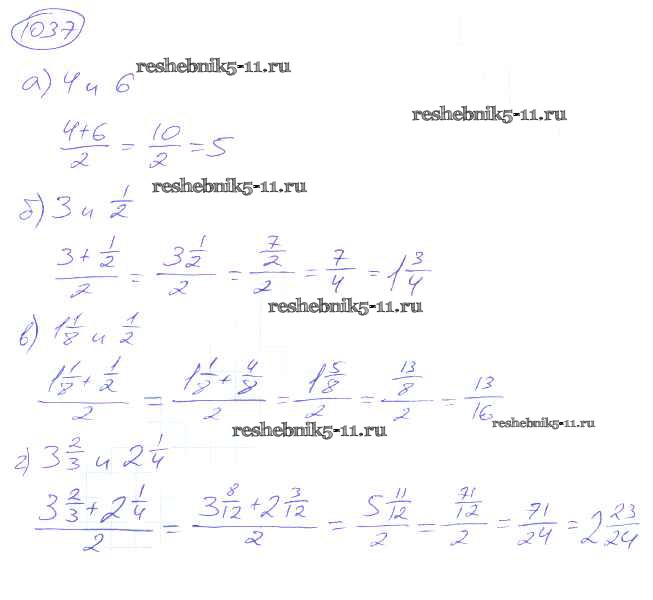 1037
reshebnik5-11.ru
а) 4 и 6
reshebnik5-11.ru
(4+6)/2 = 10/2 = 5
reshebnik5-11.ru
б) 3 и 1/2
(3 + 1/2)/2 = (3 1/2)/2 = (7/2)/2 = 7/4 = 1 3/4
reshebnik5-11.ru
в) 1 1/8 и 1/2
(1 1/8 + 1/2)/2 = (1 1/8 + 4/8)/2 = (1 5/8)/2 = (13/8)/2 = 13/16
reshebnik5-11.ru
reshebnik5-11.ru
г) 3 2/3 и 2 1/4
(3 2/3 + 2 1/4)/2 = (3 8/12 + 2 3/12)/2 = (5 11/12)/2 = (71/12)/2 = 71/24 = 2 23/24